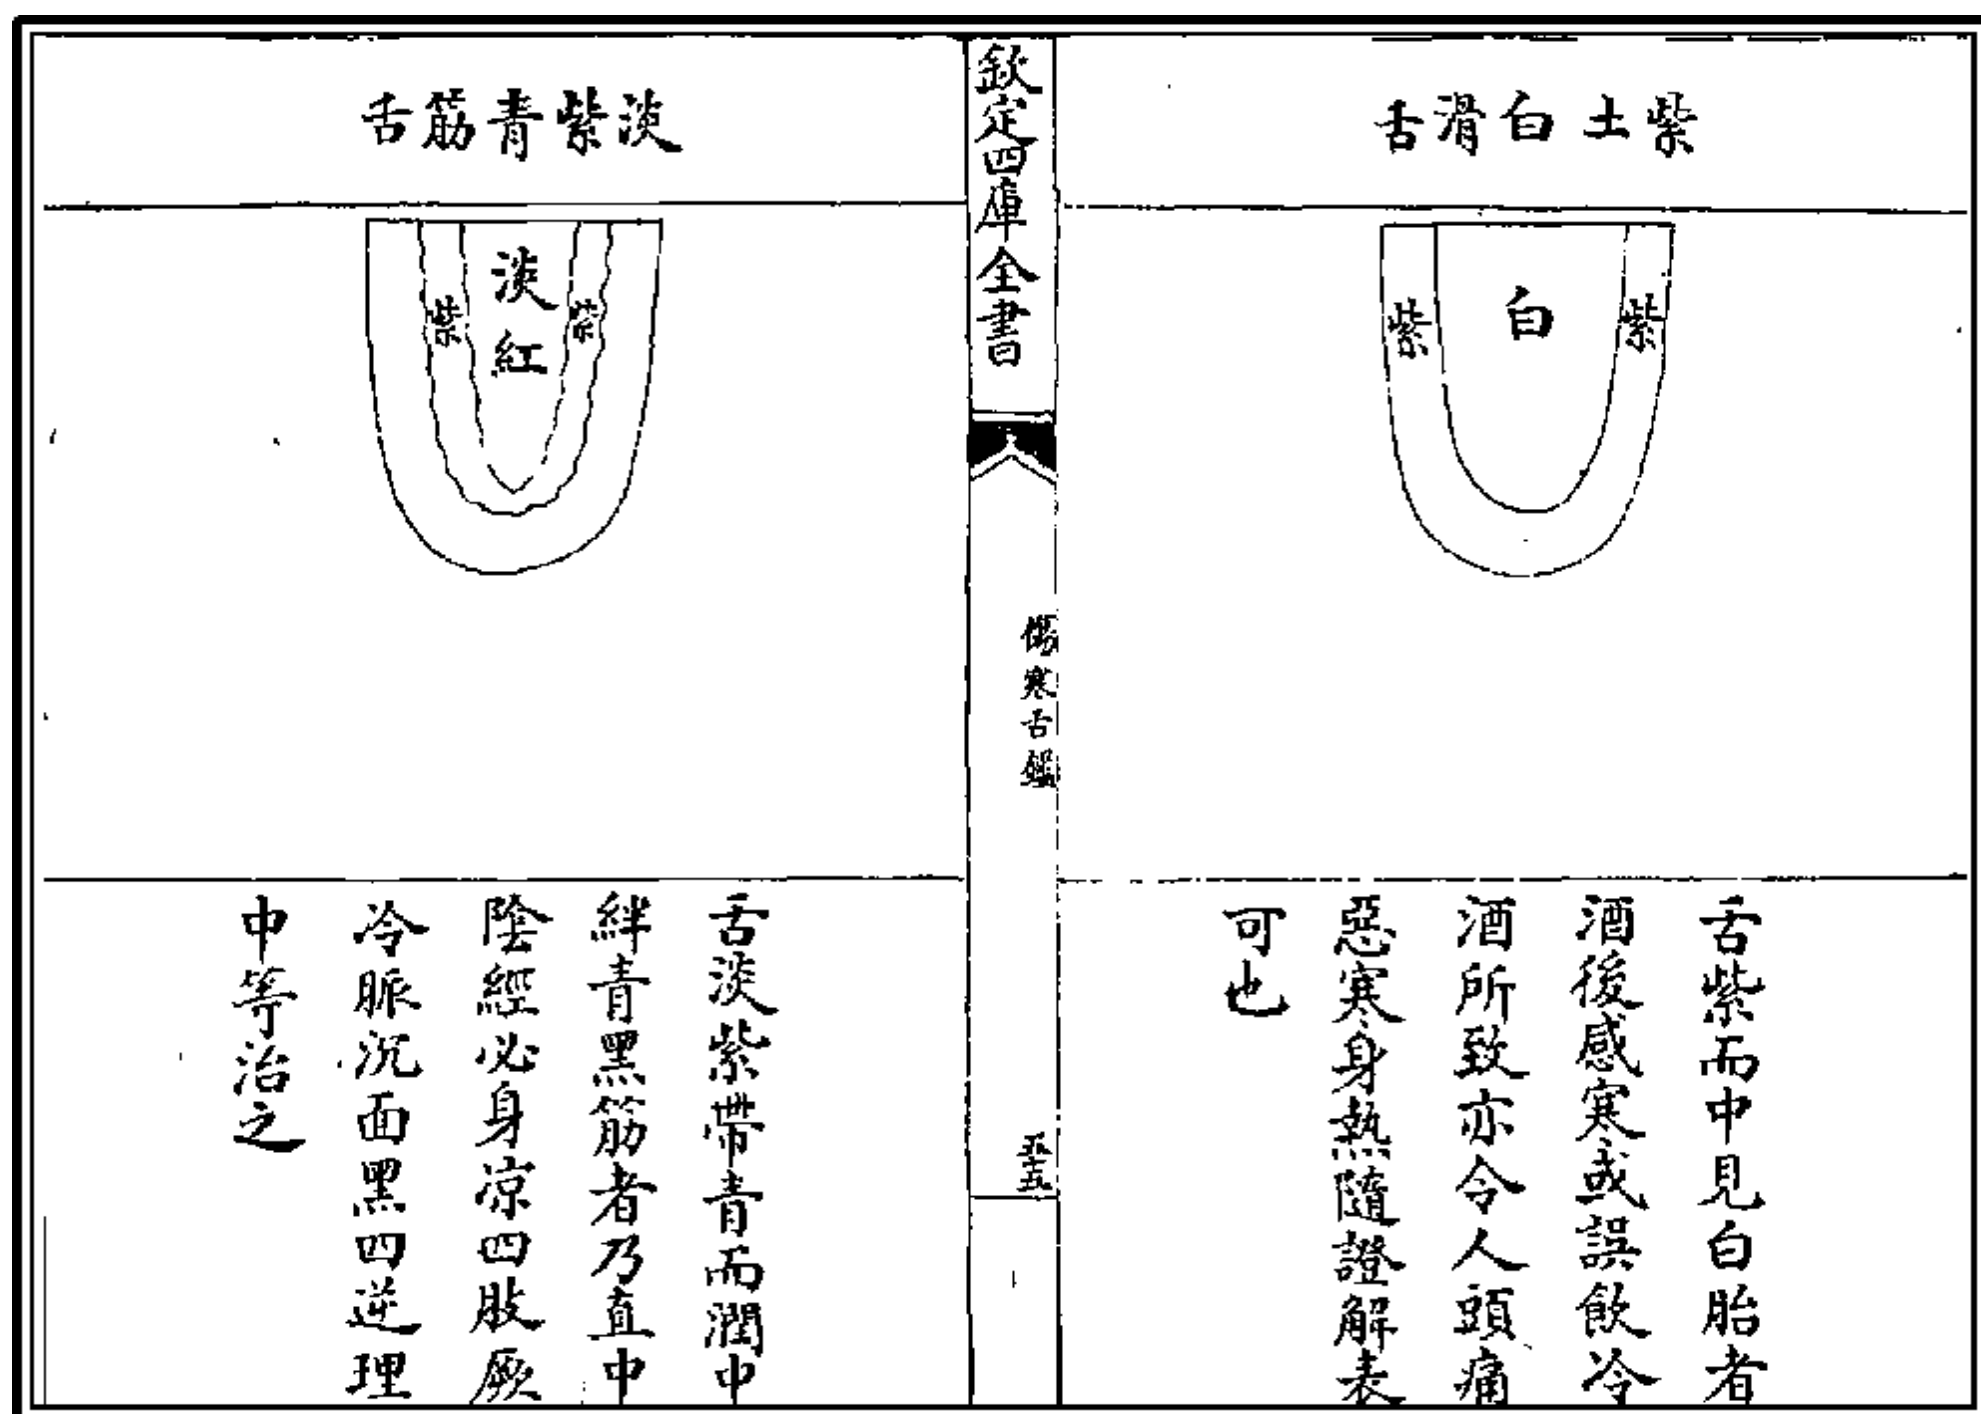 紫土白滑舌
白
紫
紫
舌紫而中見白胎者
酒後感寒或誤飲冷
酒所致亦令人頭痛
惡寒身熱隨證解表
可也
欽定四庫全書
傷寒舌鑑
五十五
淡紫青筋舌
淡紅
紫
紫
舌淡紫帶青而潤中
絆青黑筋者乃直中
陰經必身凉四肢厥
冷脈沉面黑四逆理
中等治之